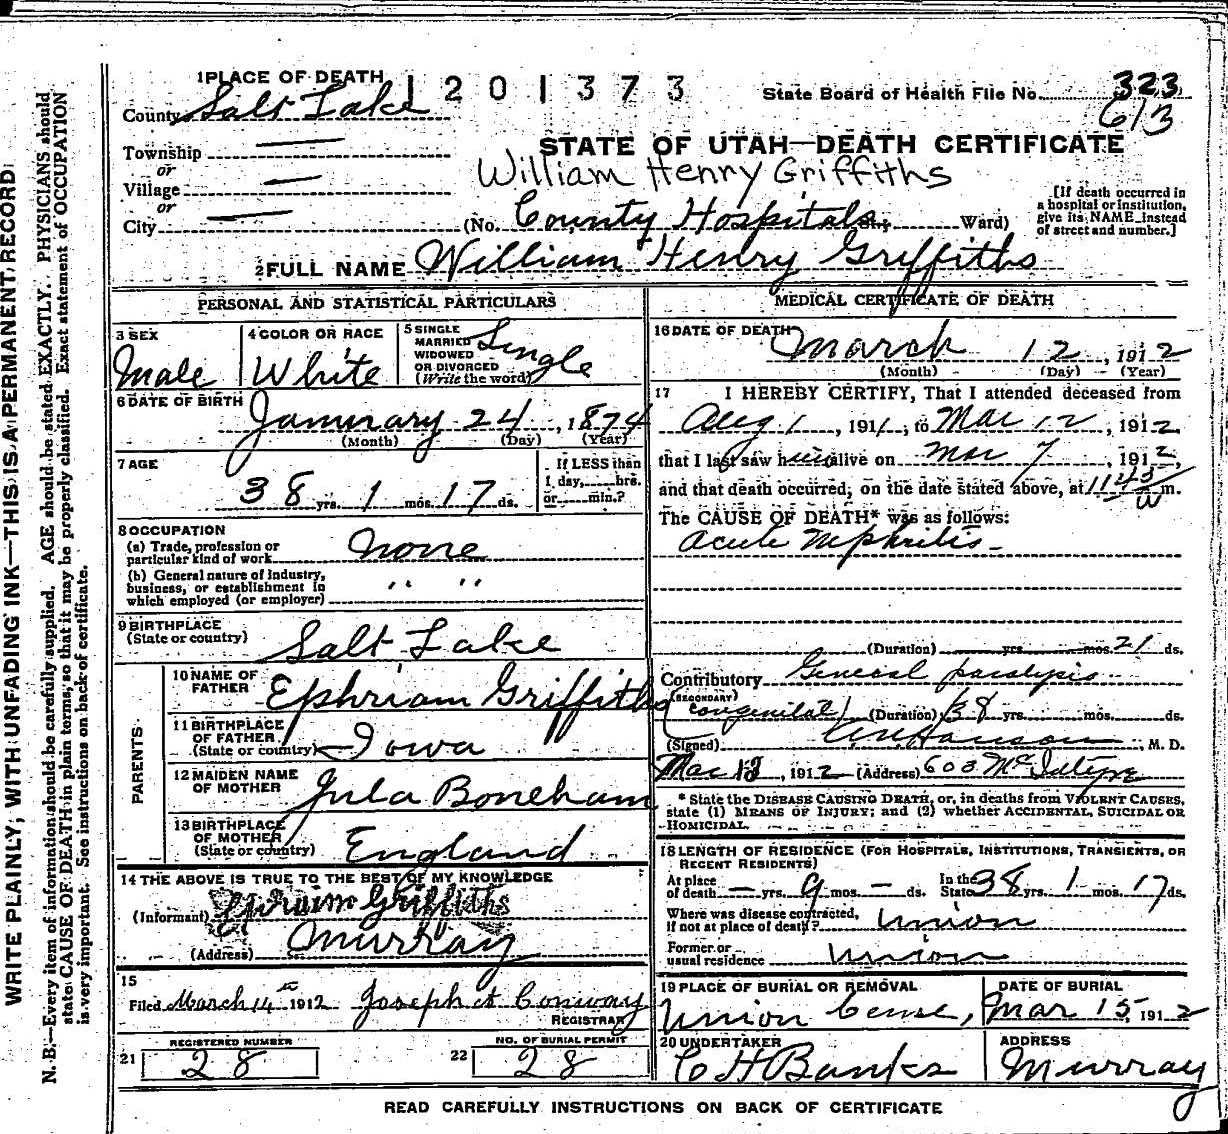 WRITE PLAINLY, WITH UNFADING INK—THIS IS A PERMANENT RECORD
N. B.—Every item of information should be carefully supplied. AGE should be stated EXACTLY. PHYSICIANS should
state CAUSE OF DEATH in plain terms, so that it may be properly classified. Exact statement of OCCUPATION
is very important. See instructions on back of certificate.
1 PLACE OF DEATH
1201373
State Board of Health File No. 323
613
County Salt Lake
STATE OF UTAH—DEATH CERTIFICATE
Township —
or
William Henry Griffiths
Village —
or
City —
(No. County Hospital St.; Ward)
[If death occurred in
a hospital or institution,
give its NAME instead
of street and number.]
2 FULL NAME William Henry Griffiths
PERSONAL AND STATISTICAL PARTICULARS
3 SEX
Male
4 COLOR OR RACE
White
5 SINGLE
MARRIED
WIDOWED
OR DIVORCED
(Write the word)
Single
6 DATE OF BIRTH
Janurary 24, 1874
(Month) (Day) (Year)
7 AGE
38 yrs. 1 mos. 17 ds.
If LESS than
1 day, hrs.
or min.?
8 OCCUPATION
(a) Trade, profession or
particular kind of work None
(b) General nature of industry,
business, or establishment in
which employed (or employer) " "
9 BIRTHPLACE
(State or country) Salt Lake
PARENTS
10 NAME OF
FATHER Ephriam Griffiths
11 BIRTHPLACE
OF FATHER
(State or country) Iowa
12 MAIDEN NAME
OF MOTHER Jula Boneham
13 BIRTHPLACE
OF MOTHER
(State or country) England
14 THE ABOVE IS TRUE TO THE BEST OF MY KNOWLEDGE
(Informant) Ephraim Griffiths
(Address) Murray
15
Filed March 14th 1912 Joseph A Conway
REGISTRAR
REGISTERED NUMBER
21 28
NO. OF BURIAL PERMIT
22 28
MEDICAL CERTIFICATE OF DEATH
16 DATE OF DEATH
March 12, 1912
(Month) (Day) (Year)
17 I HEREBY CERTIFY, That I attended deceased from
Aug 1, 1911, to Mar 12, 1912,
that I last saw him alive on Mar 7, 1912,
and that death occurred, on the date stated above, at 1145 m.
The CAUSE OF DEATH* was as follows:
Acute Nephritis
(Duration) yrs. mos. 21 ds.
Contributory General paralysis
(SECONDARY)
(congenital) (Duration) 38 yrs. mos. ds.
(Signed) Hanson, M. D.
Mar 13, 1912 (Address) 603 McIntyre
* State the DISEASE CAUSING DEATH, or, in deaths from VIOLENT CAUSES,
state (1) MEANS OF INJURY; and (2) whether ACCIDENTAL, SUICIDAL OR
HOMICIDAL.
18 LENGTH OF RESIDENCE (FOR HOSPITALS, INSTITUTIONS, TRANSIENTS, OR
RECENT RESIDENTS)
At place
of death — yrs. 9 mos. — ds.
In the
State 38 yrs. 1 mos. 17 ds.
Where was disease contracted,
if not at place of death? Union
Former or
usual residence Union
19 PLACE OF BURIAL OR REMOVAL
Union Ceme,
DATE OF BURIAL
Mar 15, 1912
20 UNDERTAKER
C H Banks
ADDRESS
Murray
READ CAREFULLY INSTRUCTIONS ON BACK OF CERTIFICATE